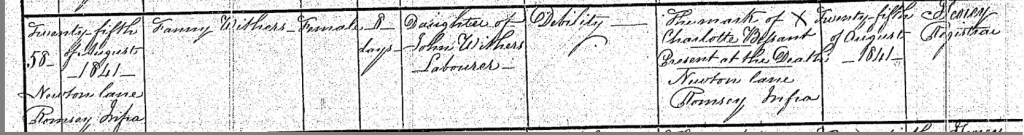 Twenty-fifth
58 of August
—1841—
Newton lane
Romsey Infra
Fanny Withers
Female
8
days
Daughter of
John Withers
Labourer—
Debility
The mark of X
Charlotte Bysant
Present at the Death
Newton lane
Romsey Infra
Twenty-fifth
of August
—1841—
Registrar